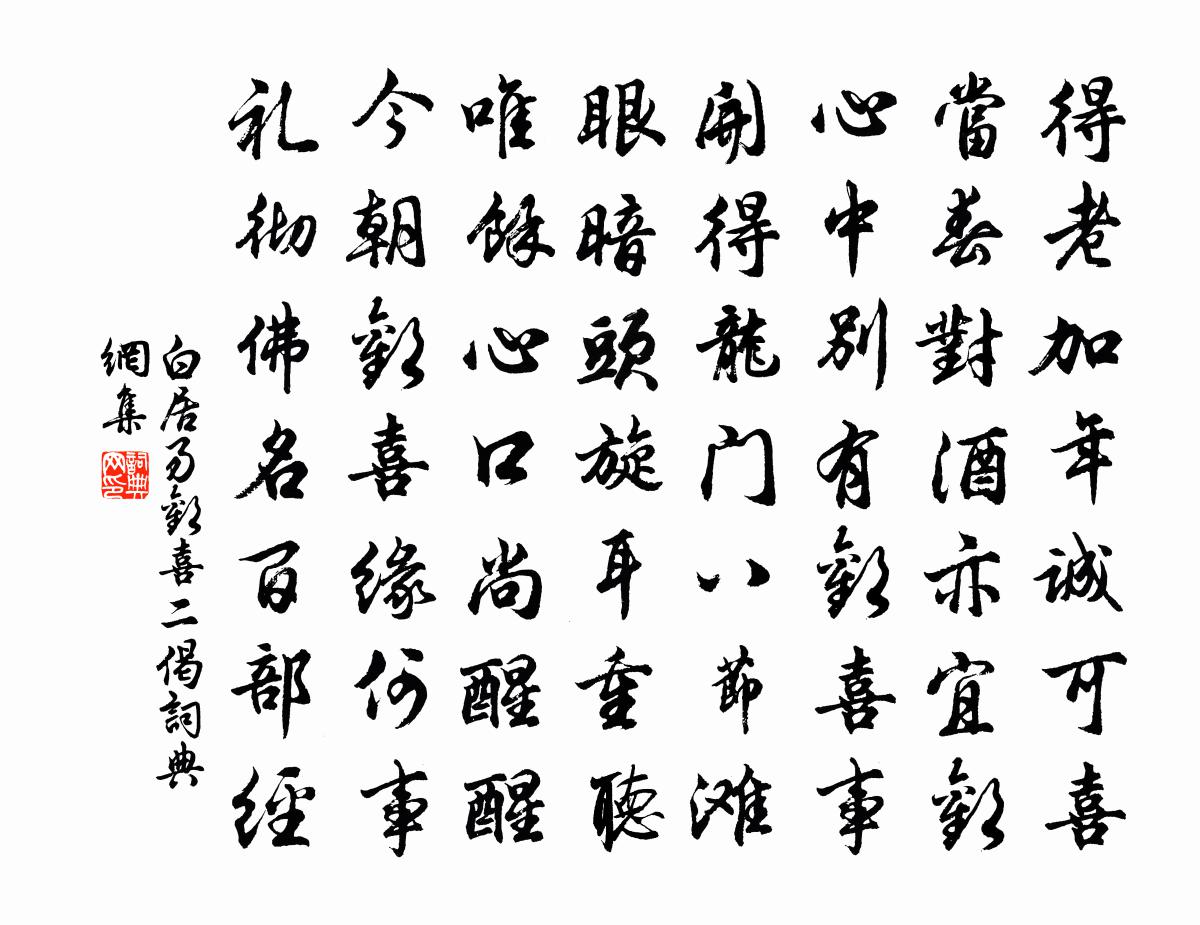 得老加年诚可喜
當春對酒亦宜歡
心中别有歡喜事
開得龍门八節滩
眼暗頭旋耳重聽
唯餘心口尚醒醒
今朝歡喜缘何事
礼彻佛名百部經
白居易歡喜二偈詞典
網集
詞典
网印